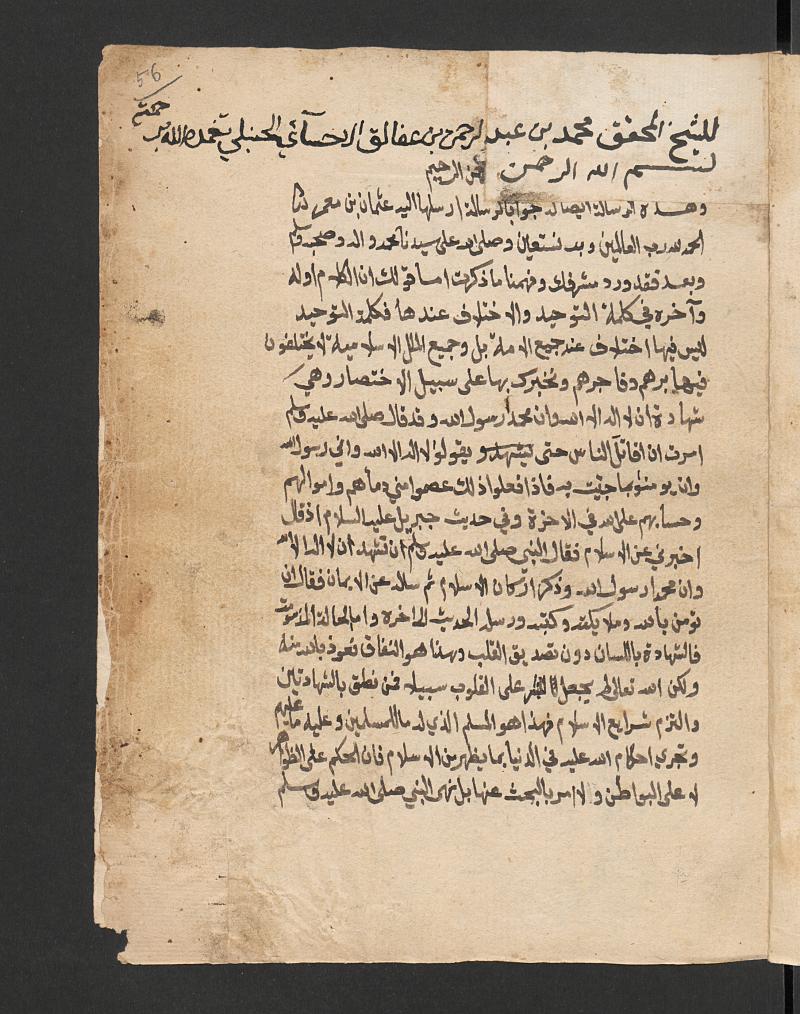 56
للشيخ المحقق محمد بن عبد الرحمن بن عفالق الاحسآئي الحنبلي تغمده الله برحمته
بسم الله الرحمن الرحيم
وهذه الرسالة ايضا له جوابا لرسالة ارسلها اليه عثمان بن معمر
الحمد لله رب العالمين وبه نستعين وصلى الله على سيدنا محمد واله وصحبه وسلم
وبعد فقد ورد مشرفك وفهمنا ما ذكرت اما قولك ان الكلام اوله
وآخره في كلمة التوحيد والاختلاف عندها فكلمة التوحيد
ليس فيها اختلاف عند جميع الامة بل وجميع الملل الاسلامية لا يختلفون
فيها برهم وفاجرهم ونخبرك بها على سبيل الاختصار وهي
شهادة ان لا اله الا الله وان محمدا رسول الله وقد قال صلى الله عليه وسلم
امرت ان اقاتل الناس حتى يشهدو ويقولو لا اله الا الله واني رسول الله
وان يومنو بما جيت به فاذا فعلوا ذلك عصموا مني دماهم واموالهم
وحسابهم على الله في الاخرة وفي حديث جبريل عليه السلام اذ قال
اخبرني عن الاسلام فقال النبي صلى الله عليه وسلم ان تشهد ان لا اله الا الله
وان محمدا رسول الله وذكر اركان الاسلام ثم ساله عن الايمان فقال ان
تومن بالله وملايكته وكتبه ورسله الحديث الى اخره واما
فالشهادة باللسان دون تصديق القلب وهذا هو النفاق نعوذ بالله منه
ولكن الله تعالى لم يجعل على القلوب سبيلا فمن نطق بالشهادتين
والتزم شرايع الاسلام فهذا هو المسلم الذي له ما للمسلمين وعليه ما عليهم
وتجري احكام الله عليه في الدنيا بما يظهر من الاسلام فان الحكم على الظواهر
لا على البواطن ولا امر بالبحث عنها بل نهى النبي صلى الله عليه وسلم